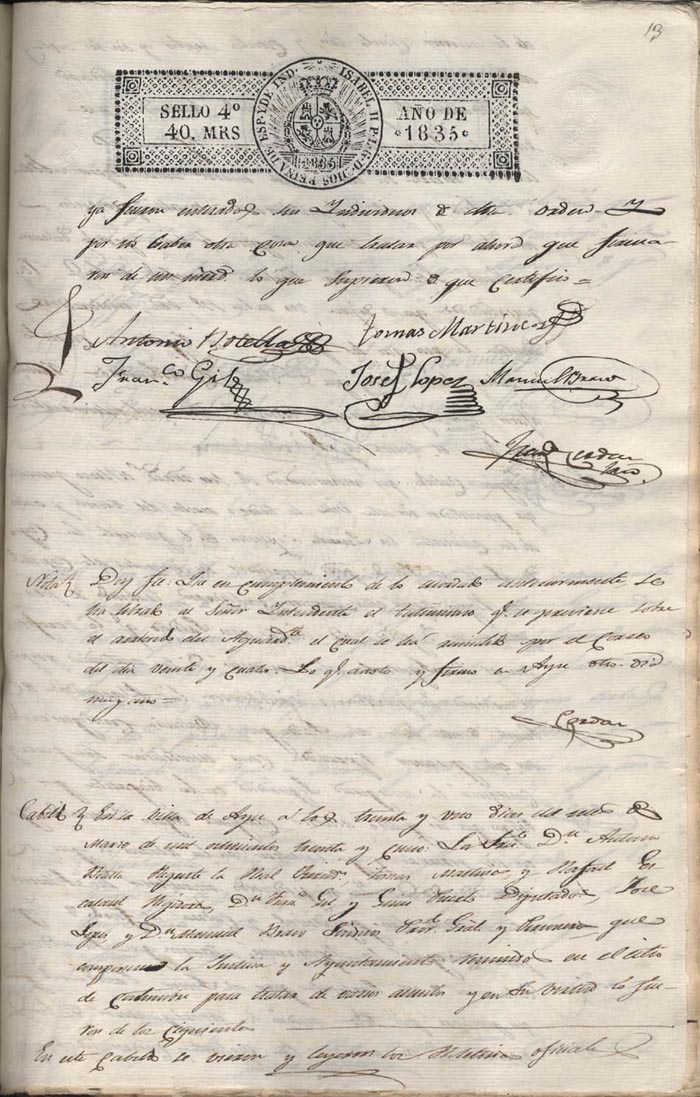 13
SELLO 4º
40. MRS
ISABEL II P. L. G. D. DIOS REINA DE ESP. Y DE IND.
1835
AÑO DE
1835
ya fueron enterados sus Individuos de dha orden Y
por no haber otra cosa que tratar por ahora que firma-
ron de un mad. lo que supieron de que certifico =
Antonio Botella
Tomas Martinez
Franco. Gil
Josef Lopez
Manuel Bravo
Cerdan
Nota
Doy fe: Que en cumplimiento de lo acordado anteriormente se
ha librado al Señor Intendente el testimonio q. se previene sobre
el del Aguard.te el cual se ha remitido por el Correo
del dia veinte y cuatro. Lo q. anoto y firmo en Ayre dho. dia
mes y año =
Cerdan
Cabildo
En la Villa de Ayre á los treinta y uno dias del mes de
Marzo de mil ochocientos treinta y cinco: Los Sres. Dn. Antonio
Botella Regente la Real Tomas Martinez y Rafael
Regidores, Dn. Franco. Gil y Gines Diputados, Jose
Lopez, y Dn. Manuel Bravo Sindico Gral. y Personero, que
componen la Justicia y Ayuntamiento reunidos en el sitio
de costumbre para tratar de varios asuntos y en su virtud lo fue-
ron de los siguientes
En este Cabildo se vieron y leyeron los Boletines oficiales